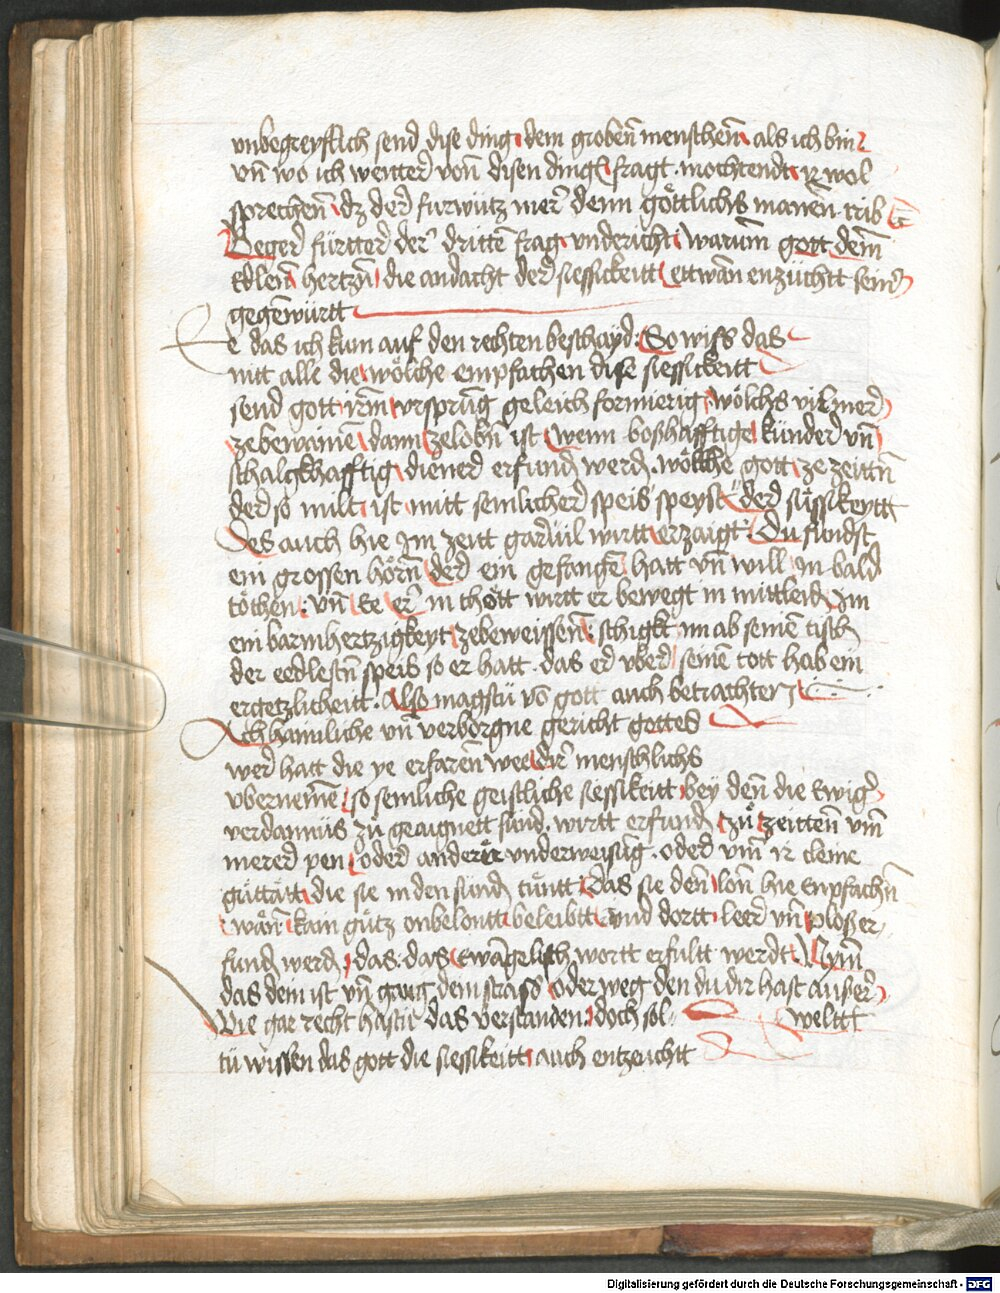 vnbegreyflich send dise ding dem grobenn̄ menschenn̄ als ich bin
vn̄ wo ich weyter von̄ disen dingē fragt · mochtendt ir wol
sprechenn̄ dz der furwütz mer denn göttlichs manēn trib
Beger fürtter der drittē frag vndericht warum̄ gott dem̄
edlenn̄ hertzn̄ die andacht der siessickeitt ettwan̄ enzüchtt seind
gegen̄württ
Ee das ich kum auf den rechten beschayd · So wiss das
nitt alle die wölche empfachen dise siessickeitt
send gott irm̄ vrsprūg geleich formierig wölchs vil mer
zebewainēn dann zelobn̄ ist wenn boßhafftige künder vn̄
schalckhafftig diener erfund werd · wölche gott ze zeittn̄
der so milt ist mitt semlicher speis speyst der süssikeytt
Des auch hie im zeitt gar vil wirtt erzaigt · Du findst
ein grossen hörn̄ der ein gefangē hatt vn̄ will in bald
töthen · vn̄ Ee er in thött wirtt er bewegt in mittleid im
ein barmhertzigkeyt zebeweissenn̄ · schigkt im ab seinē tisch
der eedlestn̄ speis so er hatt · das er vber seinē tott hab ein
ergetzlicheitt · Also magstū vō gott auch betrachten
Ach haimliche vn̄ verborgne gericht gottes
wer hatt die ye erfarēn wee dir menschlichs
vbernemē so semliche geistliche siessikeitt bey den̄ die Ewig
verdamnüs zu geaignett sind wirtt erfund zů zeittenn vm̄
merer pen oder anderer vnderweisūg · oder vm̄ ir cleine
gůttātt die sie in den sünd tůntt Das sie den̄ lon̄ hie enpfachn̄
wan̄ kain gůtz onbelontt beleibtt vnd dortt leer vn̄ ploßer
fund werd · das · das Ewāgelisch wortt erfultt werdt Nym̄
das dem ist vn̄ gang dein straß oder weg den du dir hast außer
Wie gar recht hastu das verstanden · doch sol weltt
tu wissen das gott die siessikeitt auch entzeuchtt
Digitalisierung gefördert durch die Deutsche Forschungsgemeinschaft - DFG